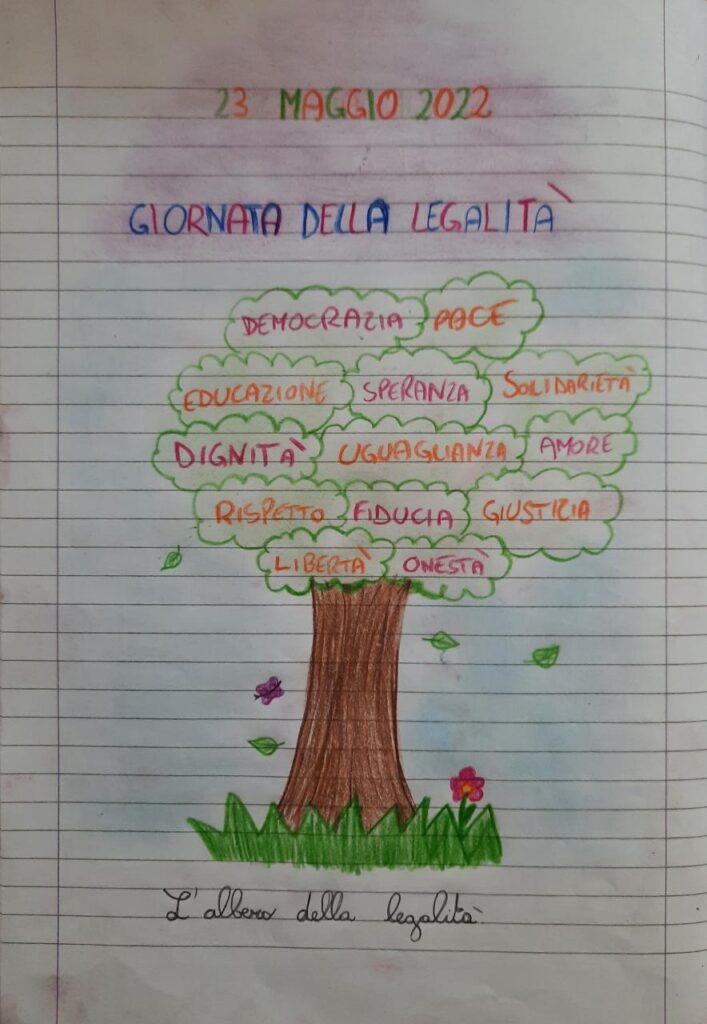 23 MAGGIO 2022
GIORNATA DELLA LEGALITÀ
DEMOCRAZIA PACE
EDUCAZIONE SPERANZA SOLIDARIETÀ
DIGNITÀ UGUAGLIANZA AMORE
RISPETTO FIDUCIA GIUSTIZIA
LIBERTÀ ONESTÀ
L'albero della legalità